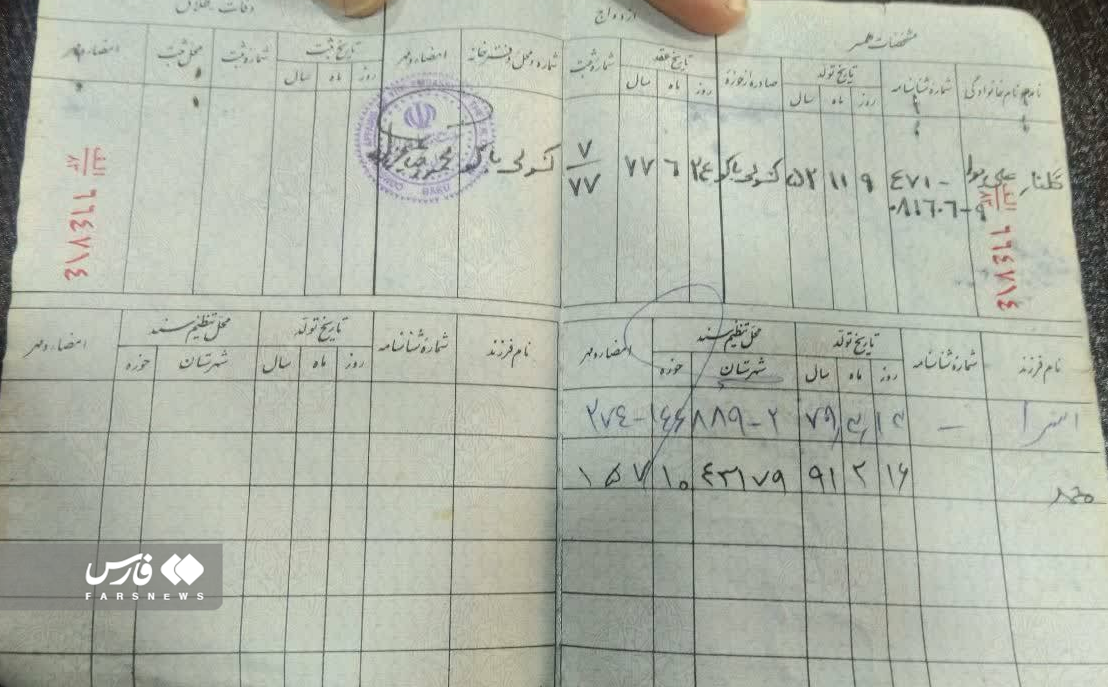 ازدواج
وفات یا طلاق
مشخصات همسر
تاریخ عقد
شماره ثبت
شماره و محل دفترخانه
امضاء و مهر
تاریخ ثبت
شماره ثبت
محل ثبت
امضاء و مهر
نام و نام خانوادگی
شماره شناسنامه
تاریخ تولد
صادره از حوزه
روز ماه سال
روز ماه سال
روز ماه سال
گلنار علی
۴۷۱-
۹ ۱۱ ۵۲
کنسولی باکو
۲۴ ۶ ۷۷
۷
۷۷
کنسولی باکو
BAKU
الف
۸۲
الف
نام فرزند
شماره شناسنامه
تاریخ تولد
محل تنظیم سند
امضاء و مهر
نام فرزند
شماره شناسنامه
تاریخ تولد
محل تنظیم سند
امضاء و مهر
روز ماه سال
شهرستان حوزه
روز ماه سال
شهرستان حوزه
اسرا
۱۶ ۲ ۹۱ ۴۳۱۷۹ ۱۰ ۱۵۷
فارس
FARSNEWS